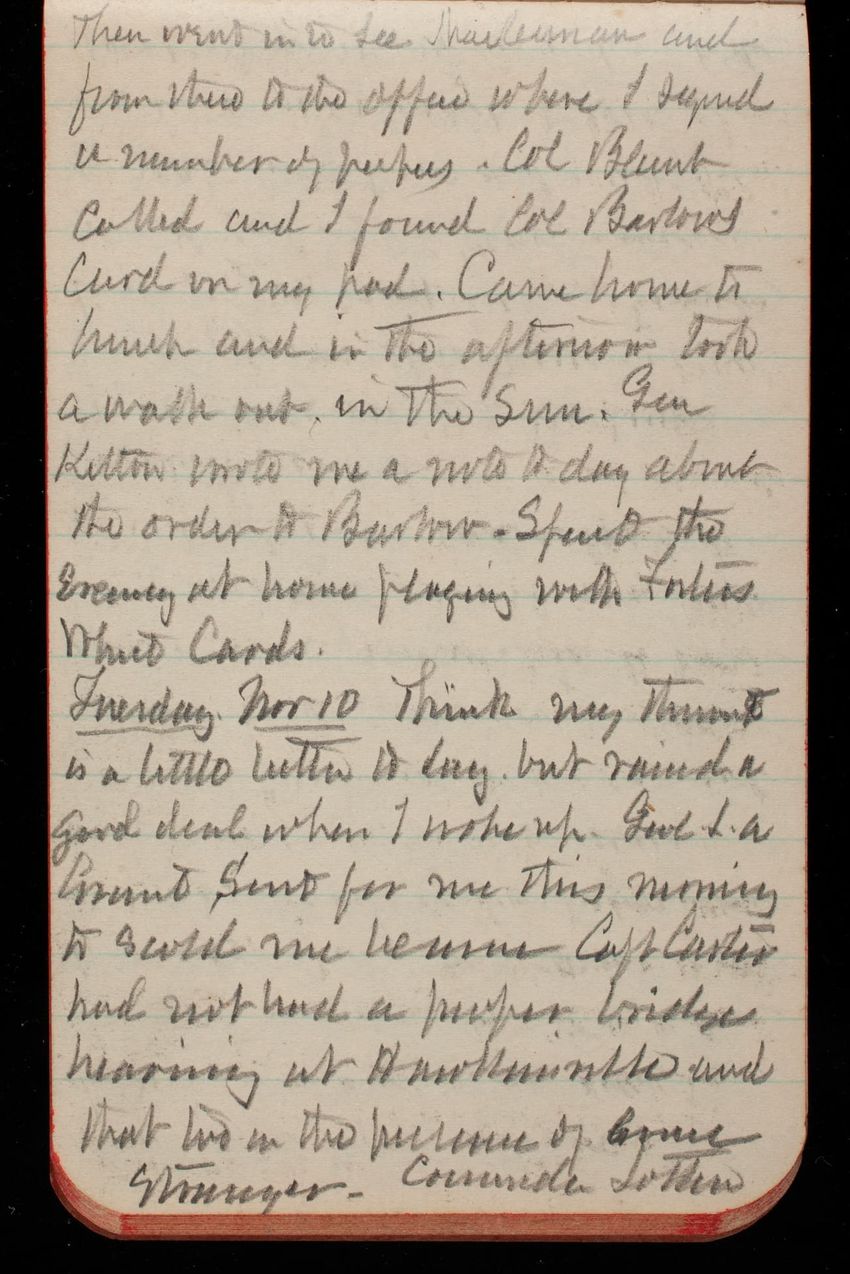 Then went in to see and
from there to the office where I signed
a number of papers. Col Blunt
called and I found Col Barlows
Card on my pad. Came home to
lunch and in the afternoon took
a walk out, in the Sun. Gen
Kelton wrote me a note to day about
the order to Barlow. Spent the
Evening at home playing with
Whist Cards.
Tuesday Nov 10 Think my throat
is a little better to day but rained a
good deal when I woke up. L. a
Grant Sent for me this morning
to scold me because Capt Carter
had not had a proper bridge
hearing at and
that too in the presence of some
Stranger - Comander